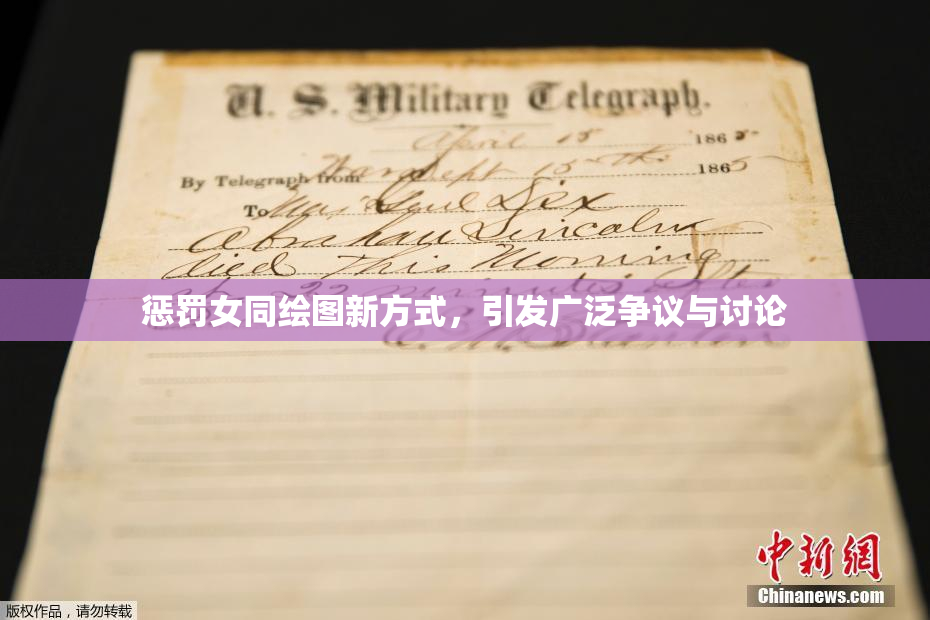 U. S. Military Telegraph.
April 15 1865
By Telegraph from War Dept 15th 1865
To Maj Genl Dix
Abraham Lincoln
died This Morning
at 22 minutes after
惩罚女同绘图新方式，引发广泛争议与讨论
中新网
Chinanews.com
版权作品，请勿转载